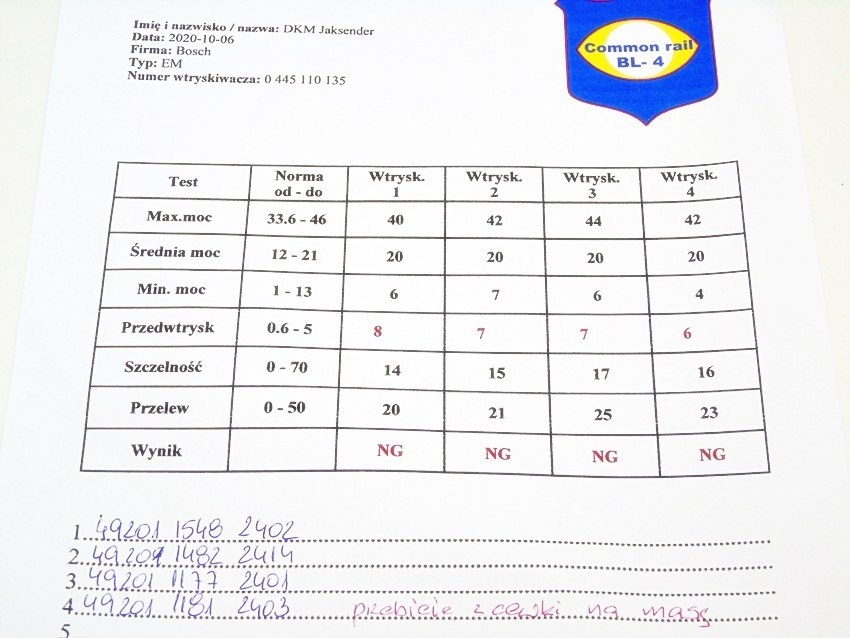 Imię i nazwisko / nazwa: DKM Jaksender
Data: 2020-10-06
Firma: Bosch
Typ: EM
Numer wtryskiwacza: 0 445 110 135
Common rail
BL- 4
Test Norma od - do Wtrysk. 1 Wtrysk. 2 Wtrysk. 3 Wtrysk. 4
Max.moc 33.6 - 46 40 42 44 42
Średnia moc 12 - 21 20 20 20 20
Min. moc 1 - 13 6 7 6 4
Przedwtrysk 0.6 - 5 8 7 7 6
Szczelność 0 - 70 14 15 17 16
Przelew 0 - 50 20 21 25 23
Wynik NG NG NG NG
1. 49201 1548 2402
2. 49201 1482 2414
3. 49201 1177 2401
4. 49201 1181 2403 przebicie z cewki na masę
5.